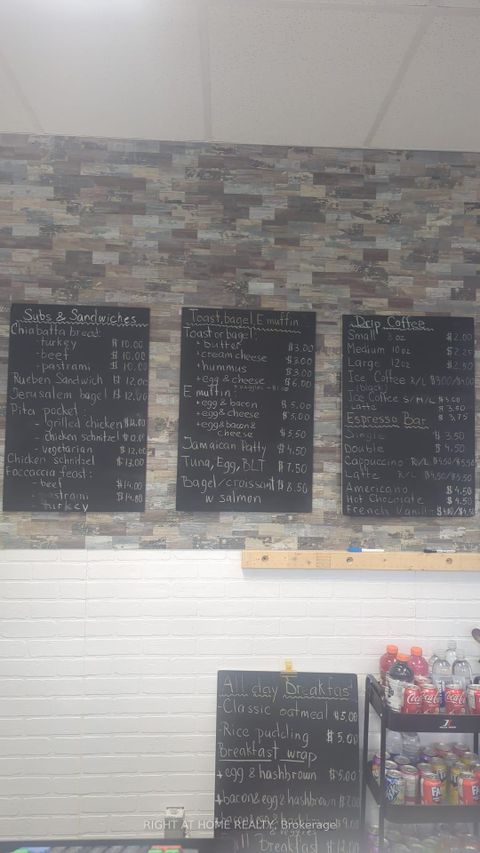 Subs & Sandwiches
Chiabatta bread:
- turkey $10.00
- beef $10.00
- pastrami $10.00
Rueben Sandwich $12.00
Jerusalem bagel $12.00
Pita pocket:
- grilled chicken
- chicken schnitzel
- vegetarian $12.00
Chicken schnitzel $13.00
Foccaccia feast:
- beef $14.00
- pastrami $14.00
- turkey
Toast, bagel, E muffin
Toast or bagel:
+ butter $3.00
+ cream cheese $3.00
+ hummus $3.00
+ egg & cheese $6.00
E muffin:
+ egg & bacon $5.00
+ egg & cheese $5.00
+ egg & bacon &
cheese $5.50
Jamaican Patty $4.50
Tuna, Egg, BLT $7.50
Bagel/croissant $8.50
w salmon
Drip Coffee
Small 8 oz $2.00
Medium 10oz $2.25
Large 12oz $2.50
Ice Coffee R/L
(black)
Ice Coffee S/M/L $3.00
Latte $3.50
$3.75
Espresso Bar
Single $3.50
Double $4.50
Cappuccino R/L $4.50/$5.50
Latte R/L $4.50/$5.50
Americano $4.50
Hot Chocolate $4.50
French Vanill
All day Breakfas
- Classic oatmeal $5.00
- Rice pudding $5.00
Breakfast wrap
+ egg & hashbrown $6.00
+ bacon & egg & hashbrown
Breakfast $12.00
RIGHT AT HOME REALTY, Brokerage